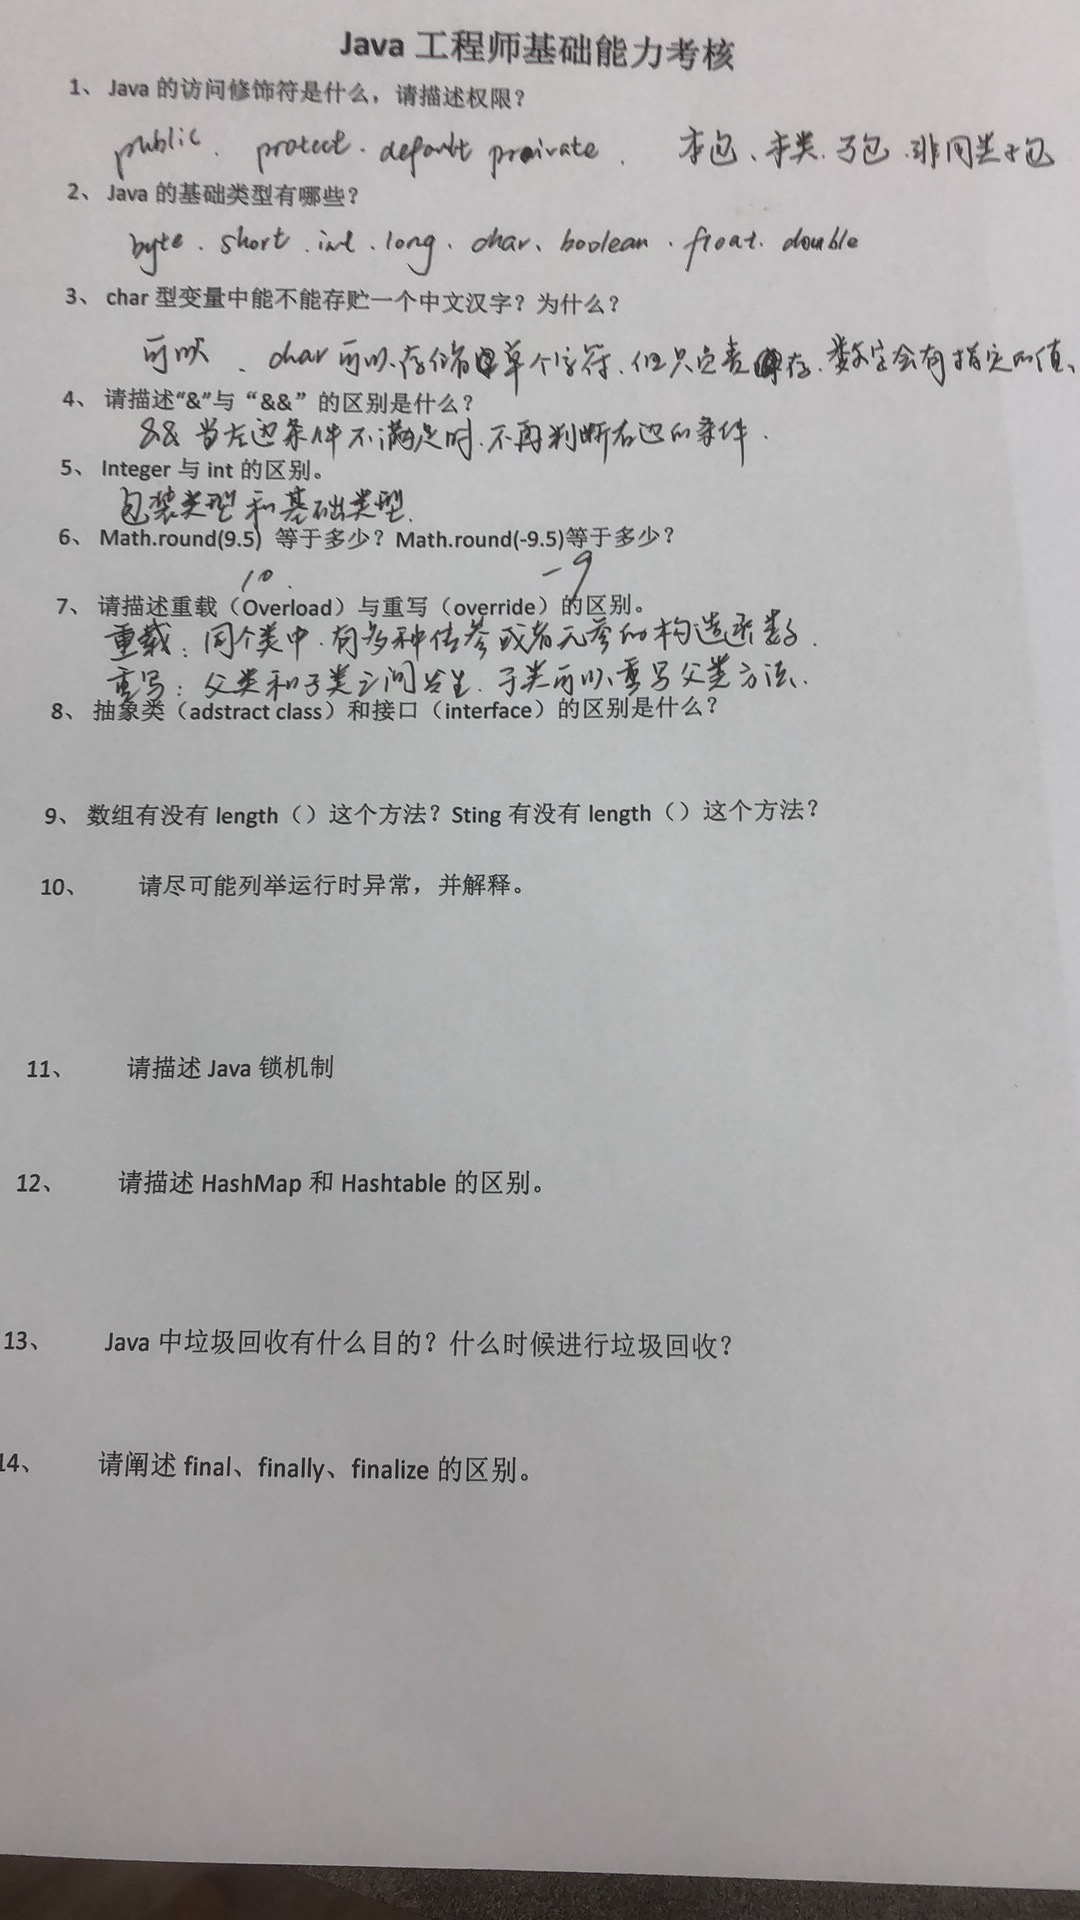 Java 工程师基础能力考核
1、 Java 的访问修饰符是什么，请描述权限？
public. protect. default private. 本包、本类.子包.非同类子包
2、 Java 的基础类型有哪些？
byte. short. int. long. char、boolean. float. double
3、 char 型变量中能不能存贮一个中文汉字？为什么？
可以、char可以存储单个字符.但只负责存.数字会有指定的值、
4、 请描述“&”与“&&”的区别是什么？
&& 当左边条件不满足时.不再判断右边的条件.
5、 Integer 与 int 的区别。
包装类型和基础类型.
6、 Math.round(9.5) 等于多少？Math.round(-9.5)等于多少？
10. -9
7、 请描述重载（Overload）与重写（override）的区别。
重载：同个类中.有多种传参或者无参的构造函数.
重写：父类和子类之间发生.子类可以重写父类方法.
8、 抽象类（adstract class）和接口（interface）的区别是什么？
9、 数组有没有 length（）这个方法？Sting 有没有 length（）这个方法？
10、 请尽可能列举运行时异常，并解释。
11、 请描述 Java 锁机制
12、 请描述 HashMap 和 Hashtable 的区别。
13、 Java 中垃圾回收有什么目的？什么时候进行垃圾回收？
14、 请阐述 final、finally、finalize 的区别。